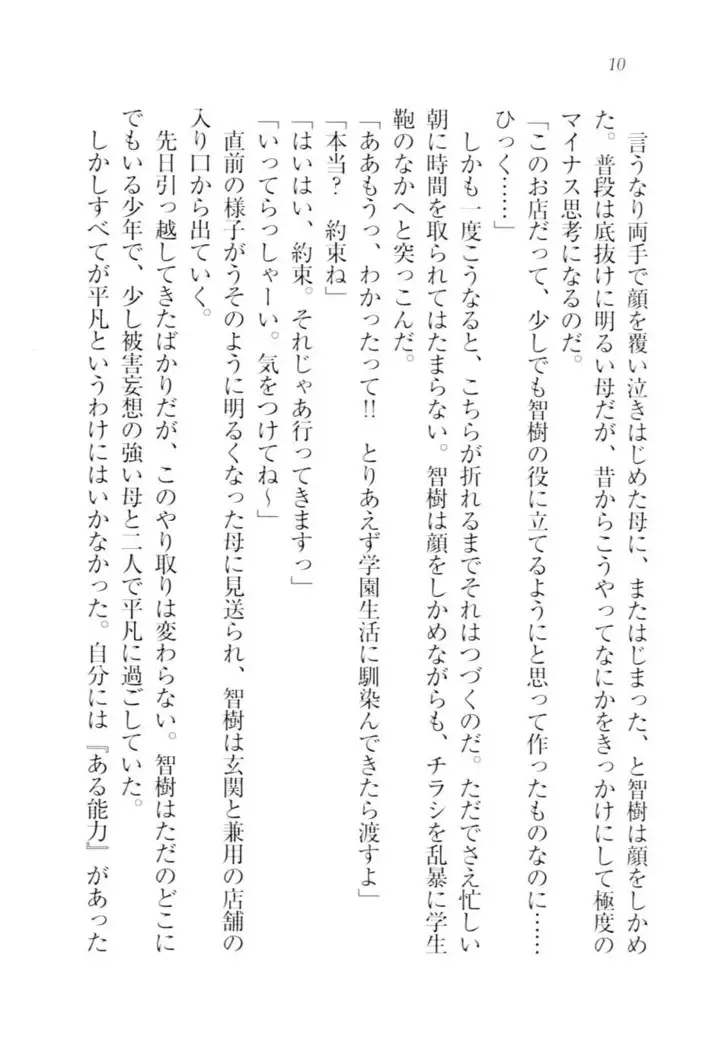 10
言うなり両手で顔を覆い泣きはじめた母に、またはじまった、と智樹は顔をしかめ
た。普段は底抜けに明るい母だが、昔からこうやってなにかをきっかけにして極度の
マイナス思考になるのだ。
「このお店だって、少しでも智樹の役に立てるようにと思って作ったものなのに……
ひっく……」
しかも一度こうなると、こちらが折れるまでそれはつづくのだ。ただでさえ忙しい
朝に時間を取られてはたまらない。智樹は顔をしかめながらも、チラシを乱暴に学生
鞄のなかへと突っこんだ。
「ああもうっ、わかったって!! とりあえず学園生活に馴染んできたら渡すよ」
「本当? 約束ね」
「はいはい、約束。それじゃあ行ってきますっ」
「いってらっしゃーい。気をつけてね〜」
直前の様子がうそのように明るくなった母に見送られ、智樹は玄関と兼用の店舗の
入り口から出ていく。
先日引っ越してきたばかりだが、このやり取りは変わらない。智樹はただのどこに
でもいる少年で、少し被害妄想の強い母と二人で平凡に過ごしていた。
しかしすべてが平凡というわけにはいかなかった。自分には『ある能力』があった